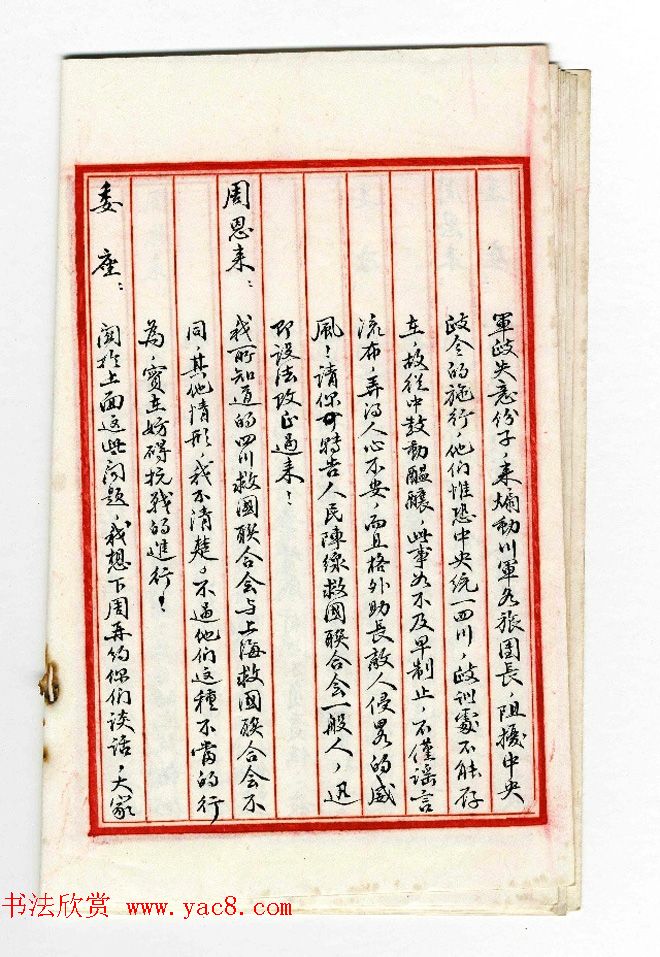 軍政失意份子，来煽動川軍各旅團長，阻擾中央
政令的施行，他們惟恐中央統一四川，政訓處不能存
在，故從中鼓動醞釀，此事如不及早制止，不僅謡言
流布，弄得人心不安，而且格外助長敵人侵畧的威
風！請你可特告人民陣線救國聯合会一般人，迅
即設法改正過来！
周恩来：我所知道的四川救國聯合会与上海救國聯合会不
同，其他情形，我不清楚。不過他們这種不當的行
為，實在妨碍抗戰的進行！
委座：関於上面这些问題，我想下周再约你们談话，大家
书法欣赏 www.yac8.com